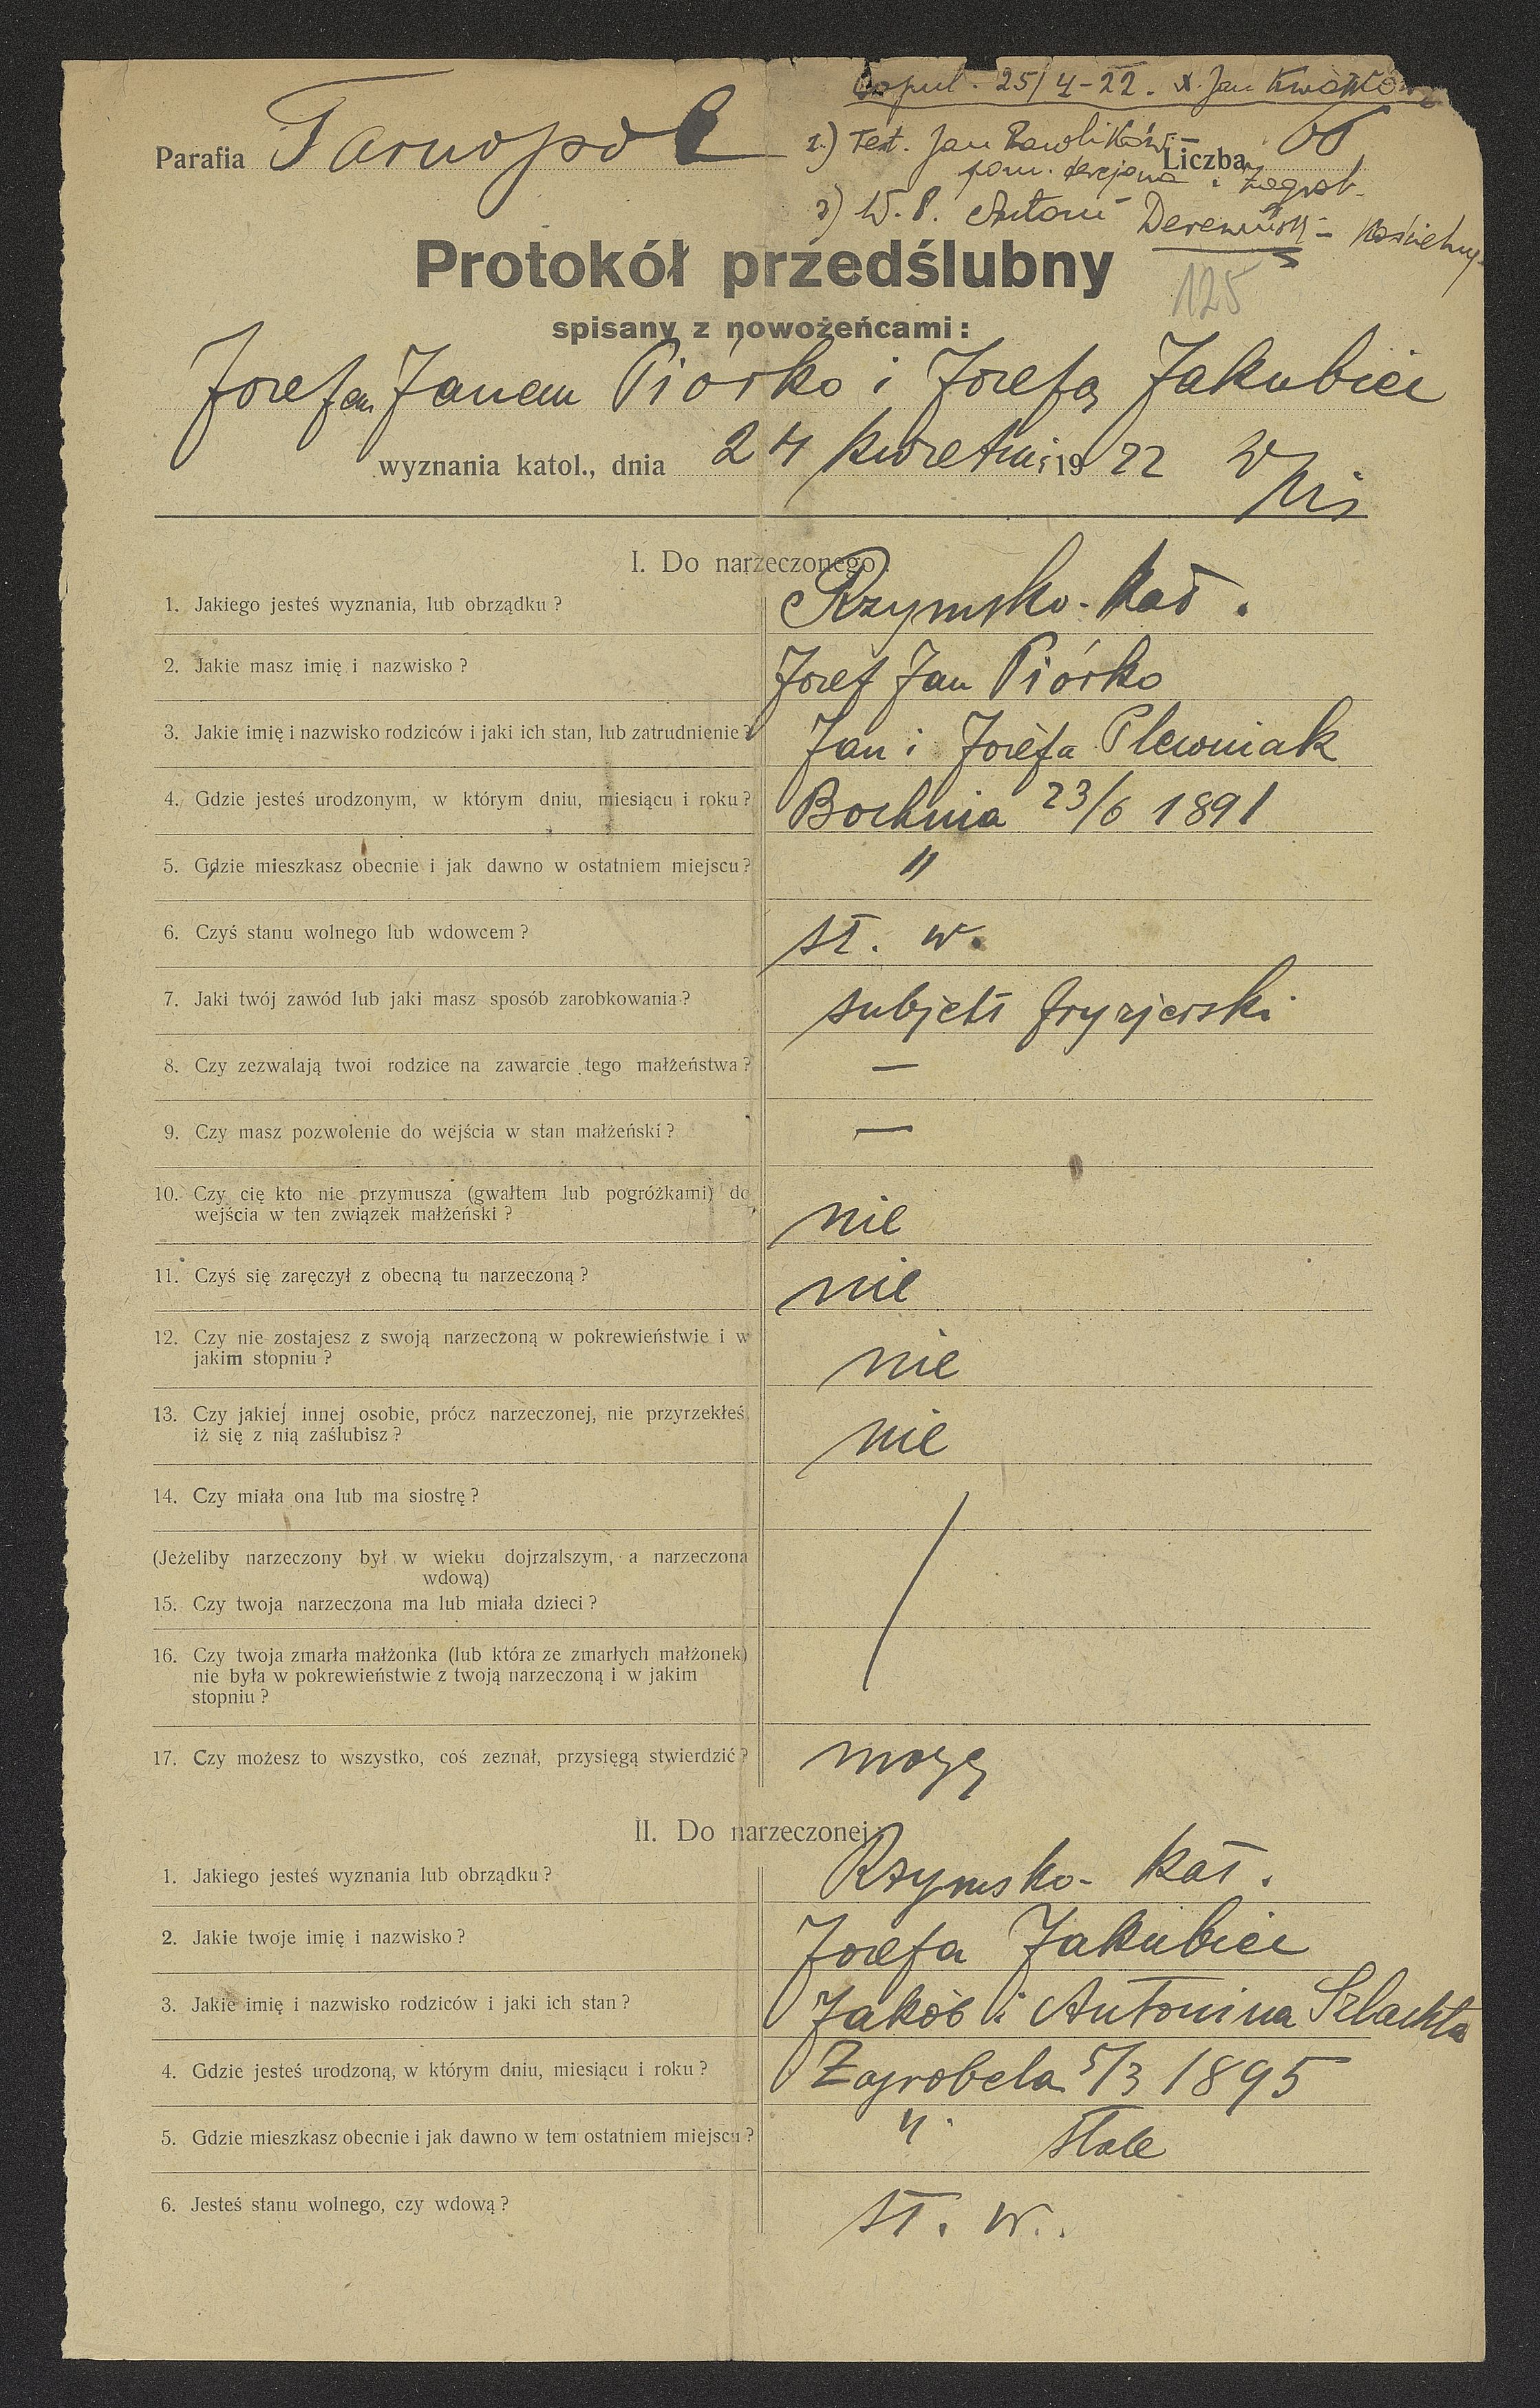 Copul. 25/4-22. X. Jan
Parafia Tarnopol
1.) Test. Jan
Liczba 66
pom. i Zagrob.
2) W. P. Antoni Kościelny
Protokół przedślubny
125
spisany z nowożeńcami:
Józefem Janem Piórko i Józefą Jakubiec
wyznania katol., dnia 24 kwietnia 1922
I. Do narzeczonego:
1. Jakiego jesteś wyznania, lub obrządku? Rzymsko-kat.
2. Jakie masz imię i nazwisko? Józef Jan Piórko
3. Jakie imię i nazwisko rodziców i jaki ich stan, lub zatrudnienie? Jan i Józefa Plewniak
4. Gdzie jesteś urodzonym, w którym dniu, miesiącu i roku? Bochnia 23/6 1891
5. Gdzie mieszkasz obecnie i jak dawno w ostatniem miejscu? "
6. Czyś stanu wolnego lub wdowcem? st. w.
7. Jaki twój zawód lub jaki masz sposób zarobkowania? subjekt fryzjerski
8. Czy zezwalają twoi rodzice na zawarcie tego małżeństwa? —
9. Czy masz pozwolenie do wejścia w stan małżeński? —
10. Czy cię kto nie przymusza (gwałtem lub pogróżkami) do
wejścia w ten związek małżeński? nie
11. Czyś się zaręczył z obecną tu narzeczoną? nie
12. Czy nie zostajesz z swoją narzeczoną w pokrewieństwie i w
jakim stopniu? nie
13. Czy jakiej innej osobie, prócz narzeczonej, nie przyrzekłeś,
iż się z nią zaślubisz? nie
14. Czy miała ona lub ma siostrę?
(Jeżeliby narzeczony był w wieku dojrzalszym, a narzeczona
wdową)
15. Czy twoja narzeczona ma lub miała dzieci?
16. Czy twoja zmarła małżonka (lub która ze zmarłych małżonek)
nie była w pokrewieństwie z twoją narzeczoną i w jakim
stopniu?
17. Czy możesz to wszystko, coś zeznał, przysięgą stwierdzić? mogę
II. Do narzeczonej:
1. Jakiego jesteś wyznania lub obrządku? Rzymsko-kat.
2. Jakie twoje imię i nazwisko? Józefa Jakubiec
3. Jakie imię i nazwisko rodziców i jaki ich stan? Jakób i Antonina Szlachta
4. Gdzie jesteś urodzoną, w którym dniu, miesiącu i roku? Zagrobela 5/3 1895
5. Gdzie mieszkasz obecnie i jak dawno w tem ostatniem miejscu? " stale
6. Jesteś stanu wolnego, czy wdową? st. w.